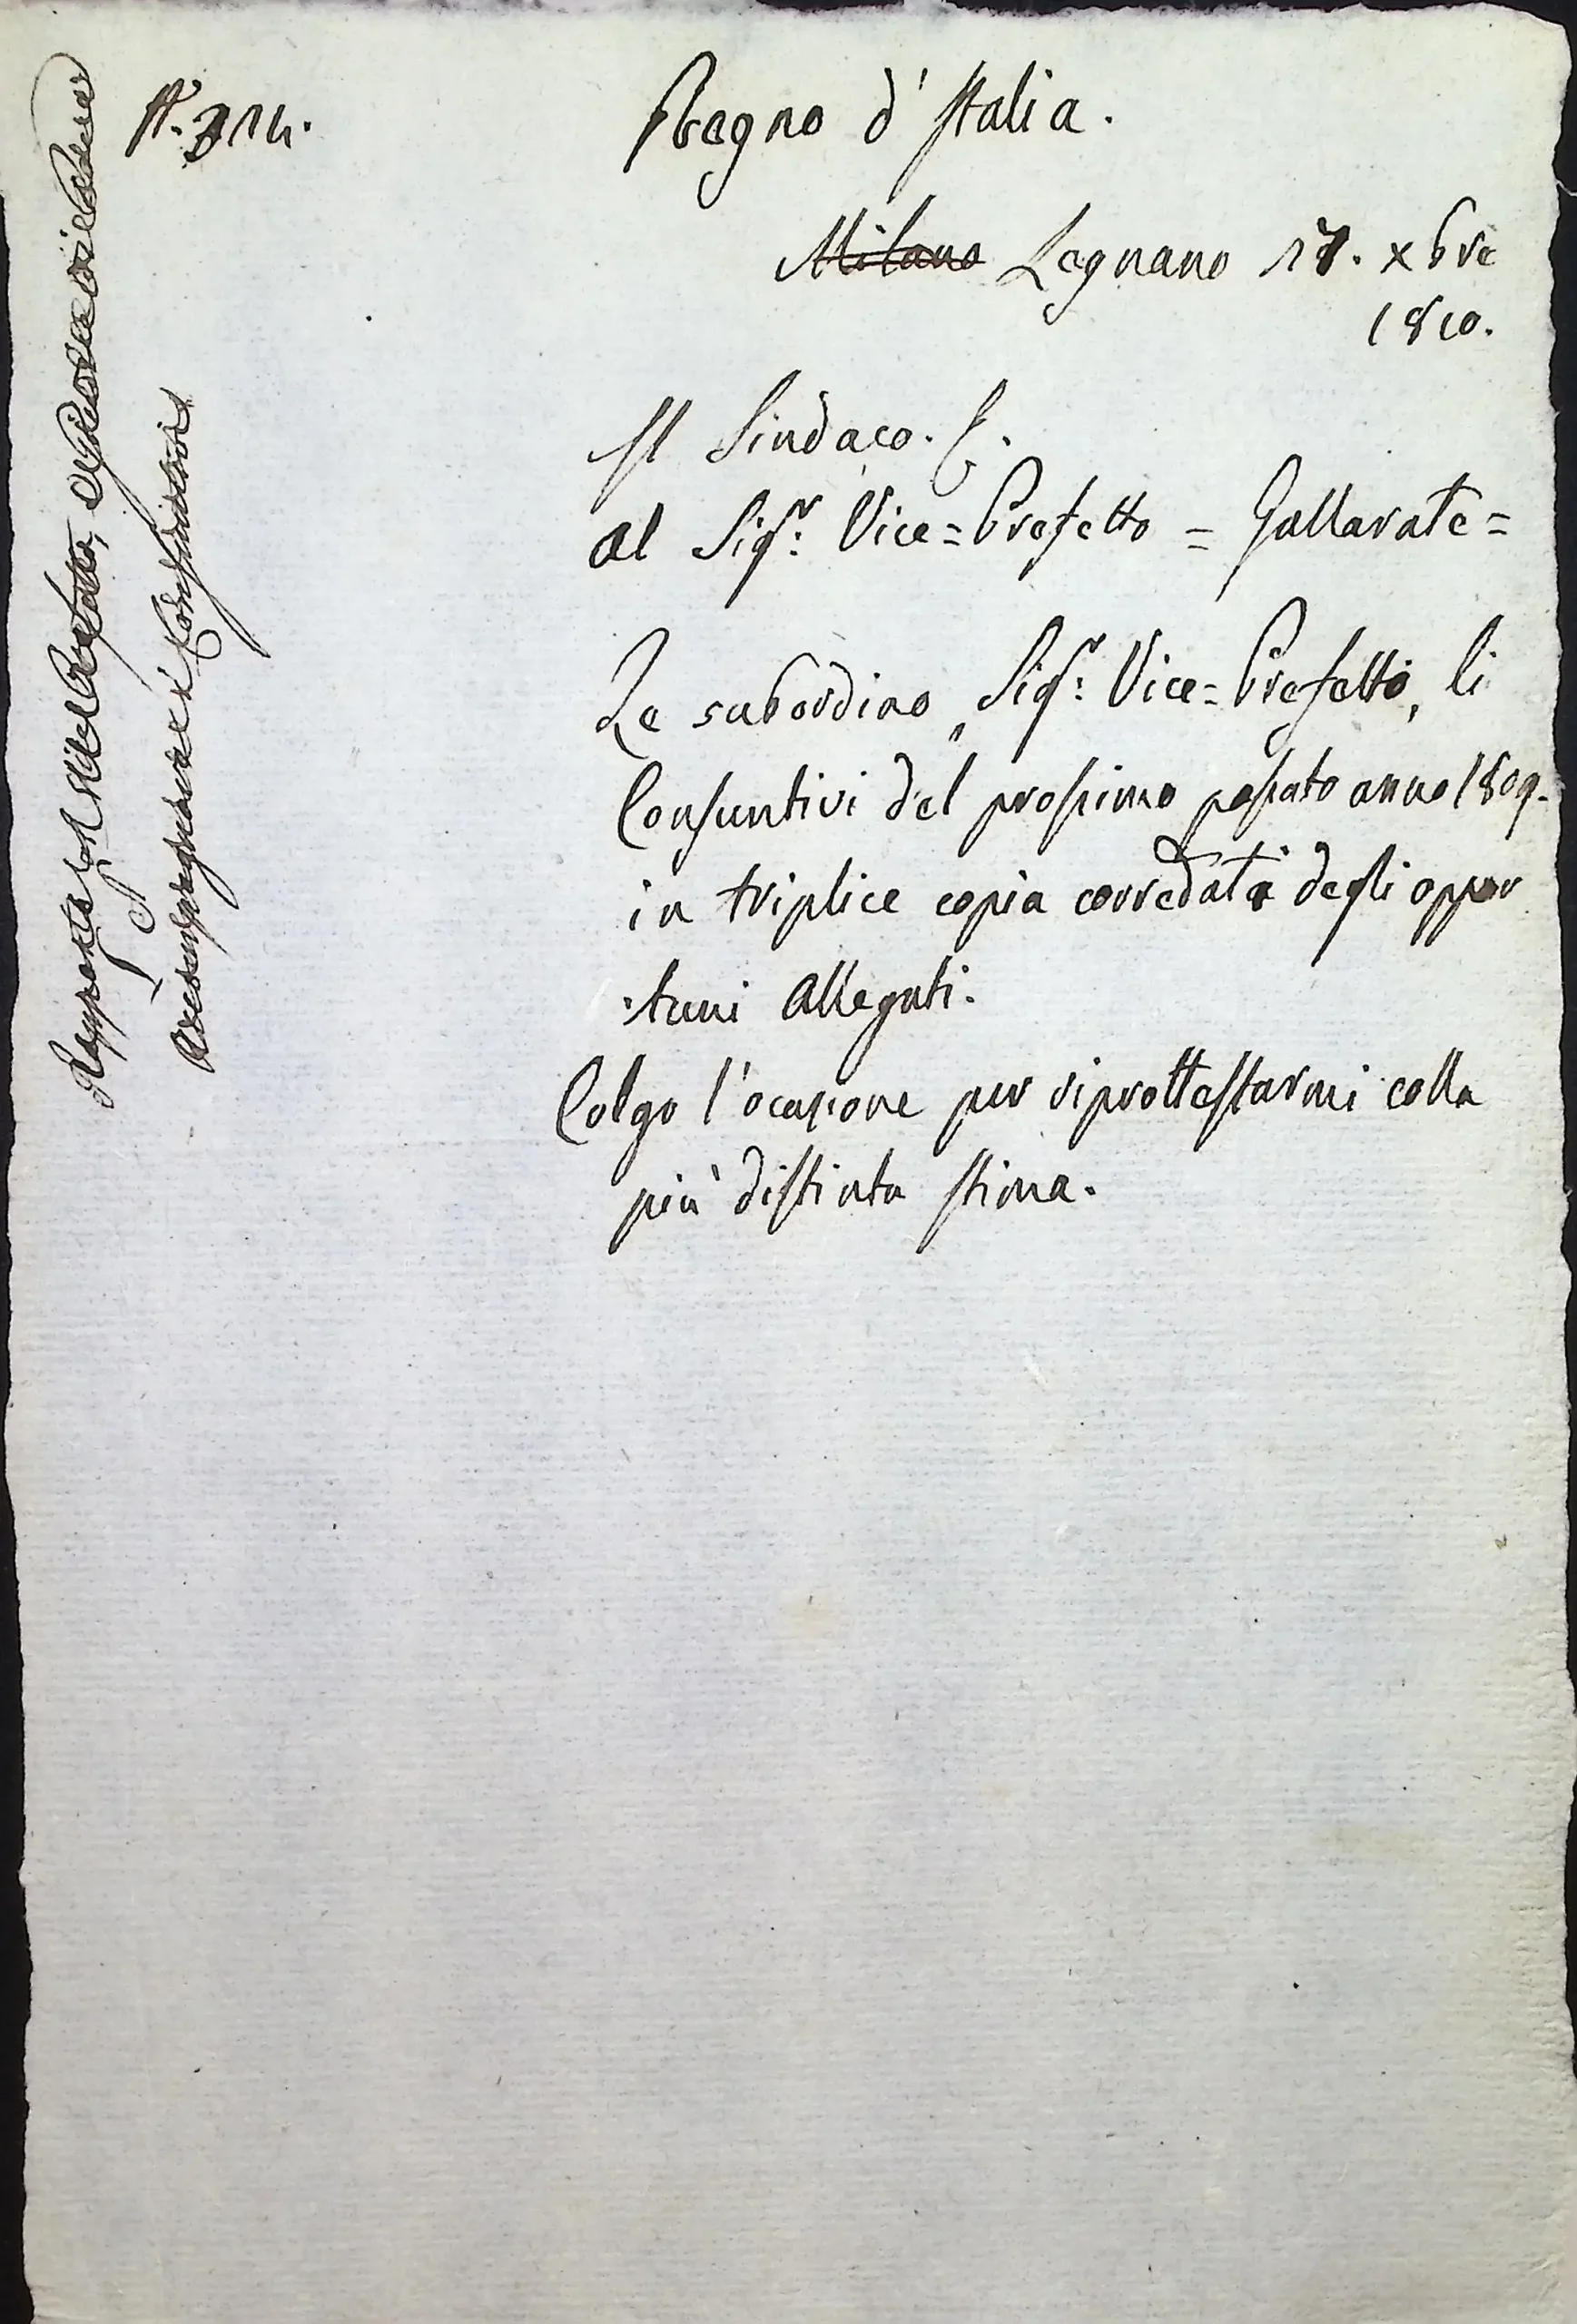 N. 314.
Regno d'Italia.
Milano Legnano 17. xbre
1810.
Il Sindaco. E.
al Sigr: Vice=Prefetto = Gallarate=
Le subordino, Sigr: Vice=Prefetto, li
Consuntivi del prossimo passato anno 1809.
in triplice copia corredata degli oppor
tuni allegati.
Colgo l'ocasione per riprottestarmi colla
più distinta stima.
Rapporto
accompagnare i Consuntivi